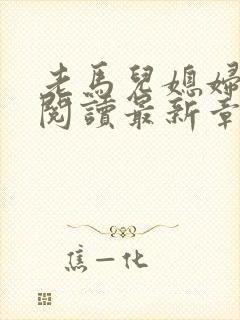 走馬兒媳婦
閱讀最新章
焦一化